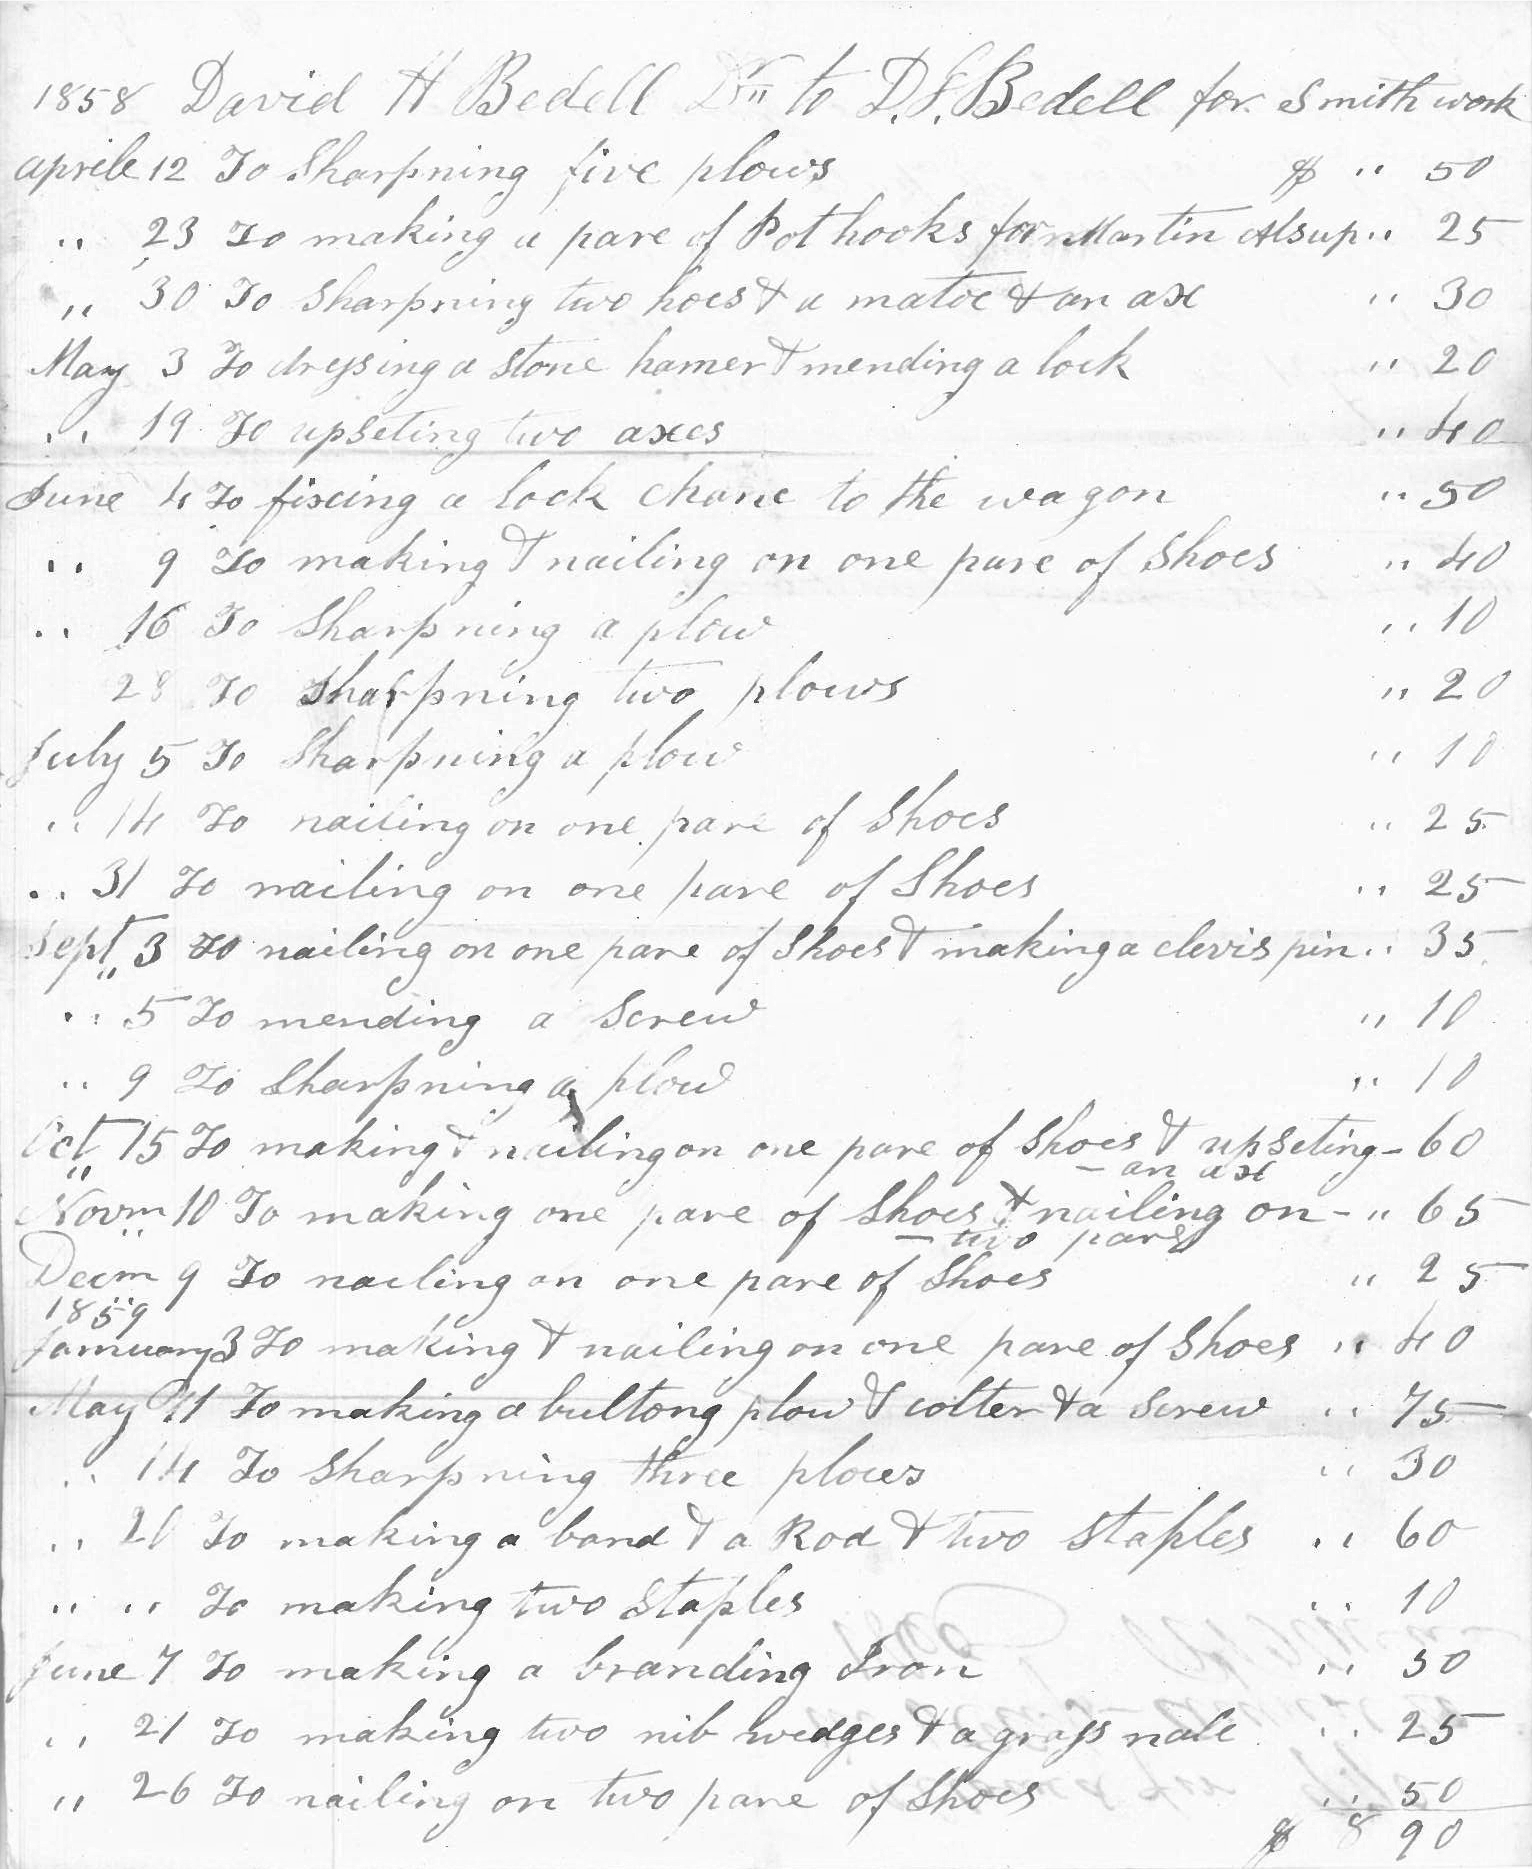 1858 David H Bedell Dr" to D. S. Bedell for Smith work
aprile 12 To Sharpning five plows $ " 50
" 23 To making a pare of Pot hooks for Martin Alsup " 25
" 30 To Sharpning two hoes & a matoc & an ax " 30
May 3 To dressing a stone hamer & mending a lock " 20
" 19 To upseting two axes " 40
June 4 To fixing a lock chane to the wagon " 50
" 9 To making & nailing on one pare of Shoes " 40
" 16 To Sharpning a plow " 10
28 To Sharpning two plows " 20
July 5 To Sharpning a plow " 10
" 14 To nailing on one pare of Shoes " 25
" 31 To nailing on one pare of Shoes " 25
Sept" 3 To nailing on one pare of Shoes & making a clevis pin " 35
" 5 To mending a Screw " 10
" 9 To Sharpning a plow " 10
Oct" 15 To making & nailing on one pare of Shoes & upseting - 60
- an ax
Novm" 10 To making one pare of Shoes & nailing on - " 65
- two pare
Decm 9 To nailing on one pare of Shoes " 25
1859
January 3 To making & nailing on one pare of Shoes " 40
May 11 To making a bultong plow & colter & a Screw " 75
" 14 To Sharpning three plows " 30
" 21 To making a band & a Rod & two Staples " 60
" " To making two Staples " 10
June 7 To making a branding Iron " 50
" 21 To making two nib wedges & a grass nale " 25
" 26 To nailing on two pare of Shoes " 50
$ 8 90